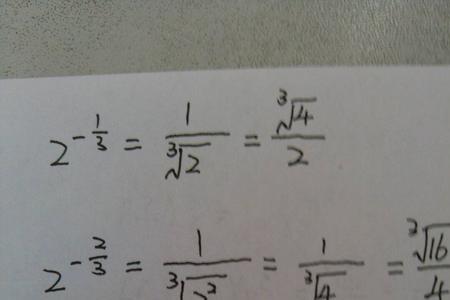 2^{-\frac{1}{3}} = \frac{1}{\sqrt[3]{2}} = \frac{\sqrt[3]{4}}{2}
2^{-\frac{2}{3}} = \frac{1}{\sqrt[3]{2^2}} = \frac{1}{\sqrt[3]{4}} = \frac{\sqrt[3]{16}}{4}